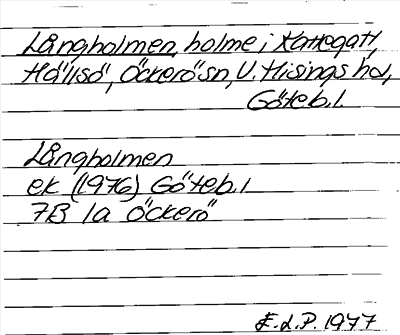 Långholmen, holme i Kattegatt,
Hällsö, Öckerö sn, V. Hisings hd,
Göteb.l.
Långholmen
ek (1976) Göteb.l
7B 1a Öckerö
E.L.P. 1977